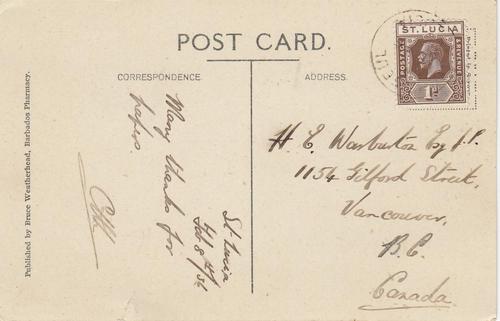 POST CARD.
CORRESPONDENCE.
ADDRESS.
ST. LUCIA
POSTAGE
& REVENUE
1D
St. Lucia
Feb 8th/36
Many thanks for
papers.
H. E. Warburton Esq J.P.
1154 Gilford Street,
Vancouver,
B.C.
Canada
Published by Bruce Weatherhead, Barbados Pharmacy.